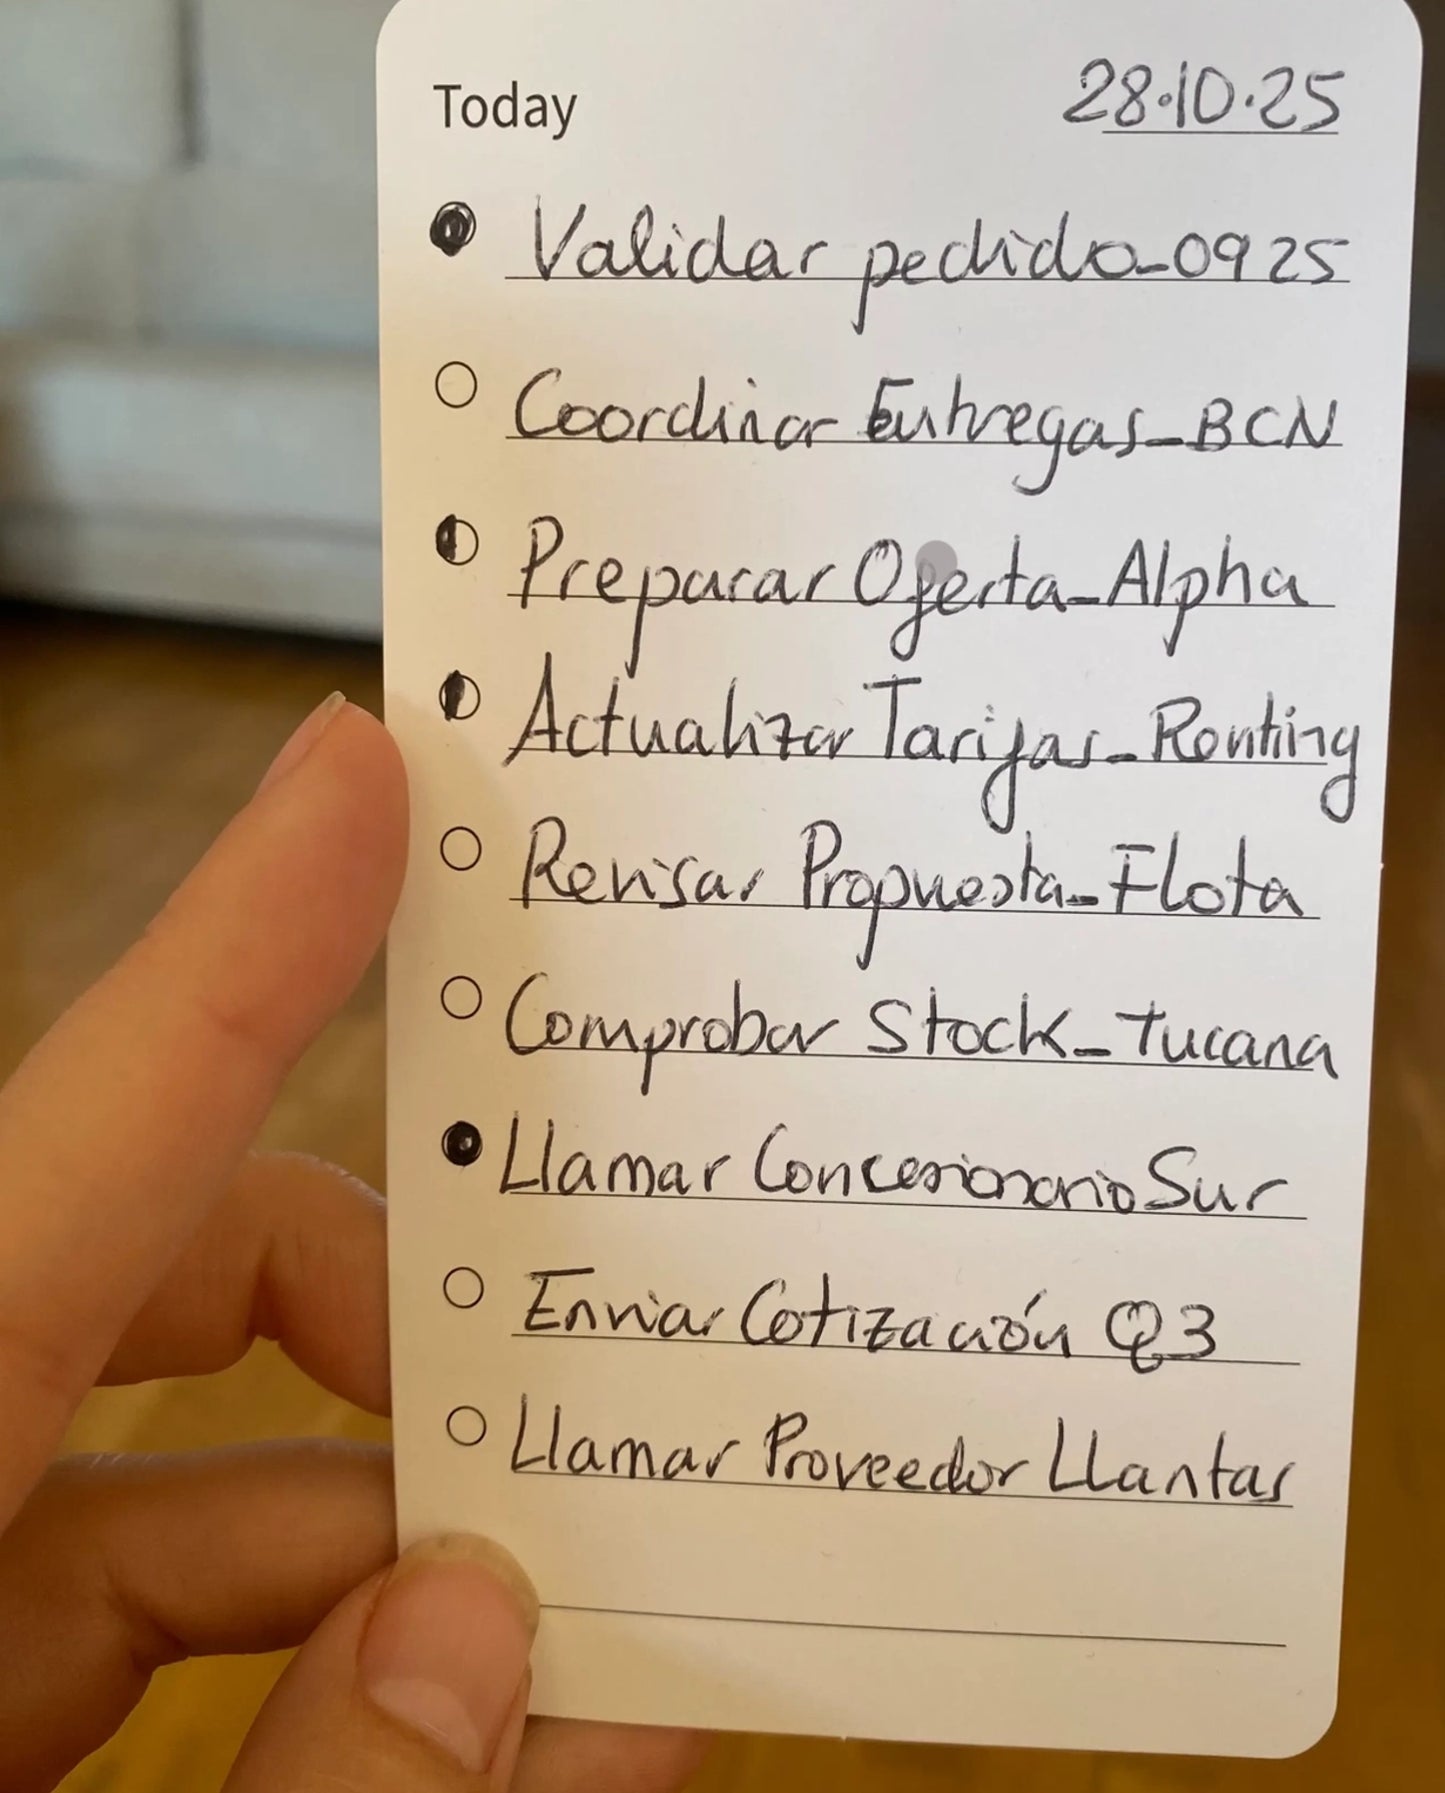 Today 28.10.25
Validar pedido_0925
Coordinar Entregas_BCN
Preparar Oferta_Alpha
Actualizar Tarifas_Renting
Revisar Propuesta_Flota
Comprobar Stock_Tucana
Llamar Concesionario Sur
Enviar Cotización Q3
Llamar Proveedor Llantas